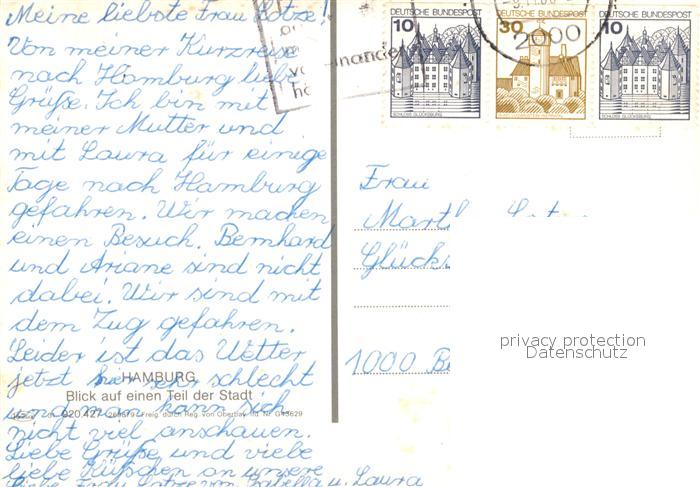 Meine liebste Frau Lotze!
Von meiner Kurzreise
nach Hamburg liebe
Grüße. Ich bin mit
meiner Mutter und
mit Laura für einige
Tage nach Hamburg
gefahren. Wir machen
einen Besuch. Bernhard
und Ariane sind nicht
dabei. Wir sind mit
dem Zug gefahren.
Leider ist das Wetter
jetzt sehr schlecht
und man kann sich
nicht viel anschauen.
Liebe Grüße und viele
liebe Küßchen an unsere
liebe Frau Lotze von Isabella u. Laura
HAMBURG
Blick auf einen Teil der Stadt
020.427
Freig. durch Reg. von Oberbay.
DEUTSCHE BUNDESPOST
10
SCHLOSS GLÜCKSBURG
DEUTSCHE BUNDESPOST
30
DEUTSCHE BUNDESPOST
10
SCHLOSS GLÜCKSBURG
2000
Frau
1000
privacy protection
Datenschutz